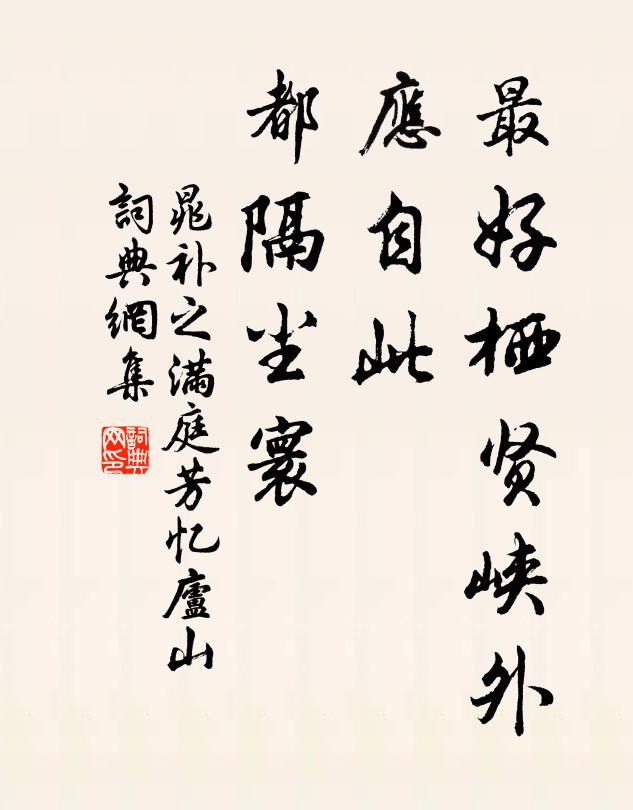 最好栖贤峡外
應自此
都隔尘寰
晁补之满庭芳忆廬山
詞典網集
詞典网印